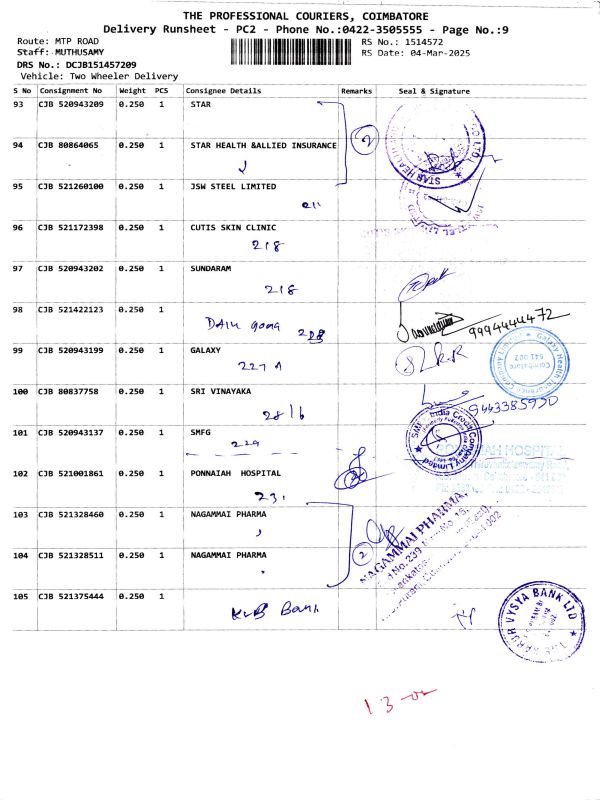 THE PROFESSIONAL COURIERS, COIMBATORE
Delivery Runsheet - PC2 - Phone No.:0422-3505555 - Page No.:9
Route: MTP ROAD RS No.: 1514572
Staff: MUTHUSAMY RS Date: 04-Mar-2025
DRS No.: DCJB151457209
Vehicle: Two Wheeler Delivery
S No Consignment No Weight PCS Consignee Details Remarks Seal & Signature
93 CJB 520943209 0.250 1 STAR
2
94 CJB 80864065 0.250 1 STAR HEALTH &ALLIED INSURANCE
STAR HEALTH CO LTD
95 CJB 521260100 0.250 1 JSW STEEL LIMITED
211
96 CJB 521172398 0.250 1 CUTIS SKIN CLINIC
218
97 CJB 520943202 0.250 1 SUNDARAM
218
98 CJB 521422123 0.250 1
9994444472
99 CJB 520943199 0.250 1 GALAXY
227 A
Galaxy Health Insurance Company Limited
Coimbatore
641 002
100 CJB 80837758 0.250 1 SRI VINAYAKA
228/6
9443385950
101 CJB 520943137 0.250 1 SMFG
229
SMFG India Credit Company Limited
102 CJB 521001861 0.250 1 PONNAIAH HOSPITAL
231
HOSPITAL
103 CJB 521328460 0.250 1 NAGAMMAI PHARMA
2
NAGAMMAI PHARMA,
No. 239
104 CJB 521328511 0.250 1 NAGAMMAI PHARMA
105 CJB 521375444 0.250 1
KVB Bank
KARUR VYSYA BANK LTD
13